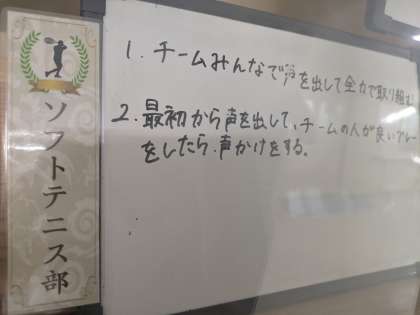 ソフトテニス部
1. チームみんなで声を出して全力で取り組む
2. 最初から声を出して、チームの人が良いプレー
をしたら、声かけをする。